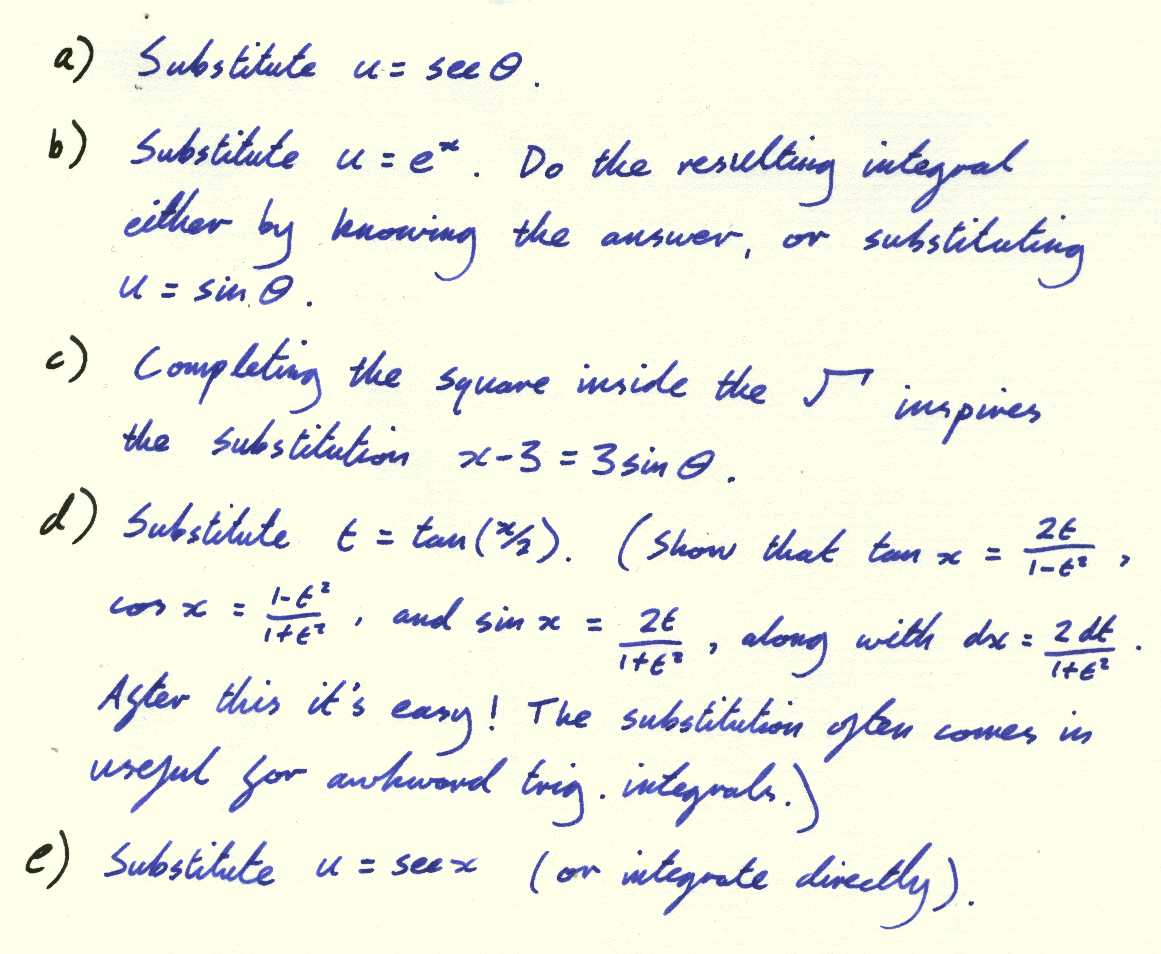 a) Substitute u = sec θ.
b) Substitute u = eˣ. Do the resulting integral
either by knowing the answer, or substituting
u = sin θ.
c) Completing the square inside the √ inspires
the substitution x-3 = 3 sin θ.
d) Substitute t = tan(x/2). (Show that tan x = 2t/(1-t²),
cos x = (1-t²)/(1+t²), and sin x = 2t/(1+t²), along with dx = 2 dt/(1+t²).
After this it's easy! The substitution often comes in
useful for awkward trig. integrals.)
e) Substitute u = sec x (or integrate directly).